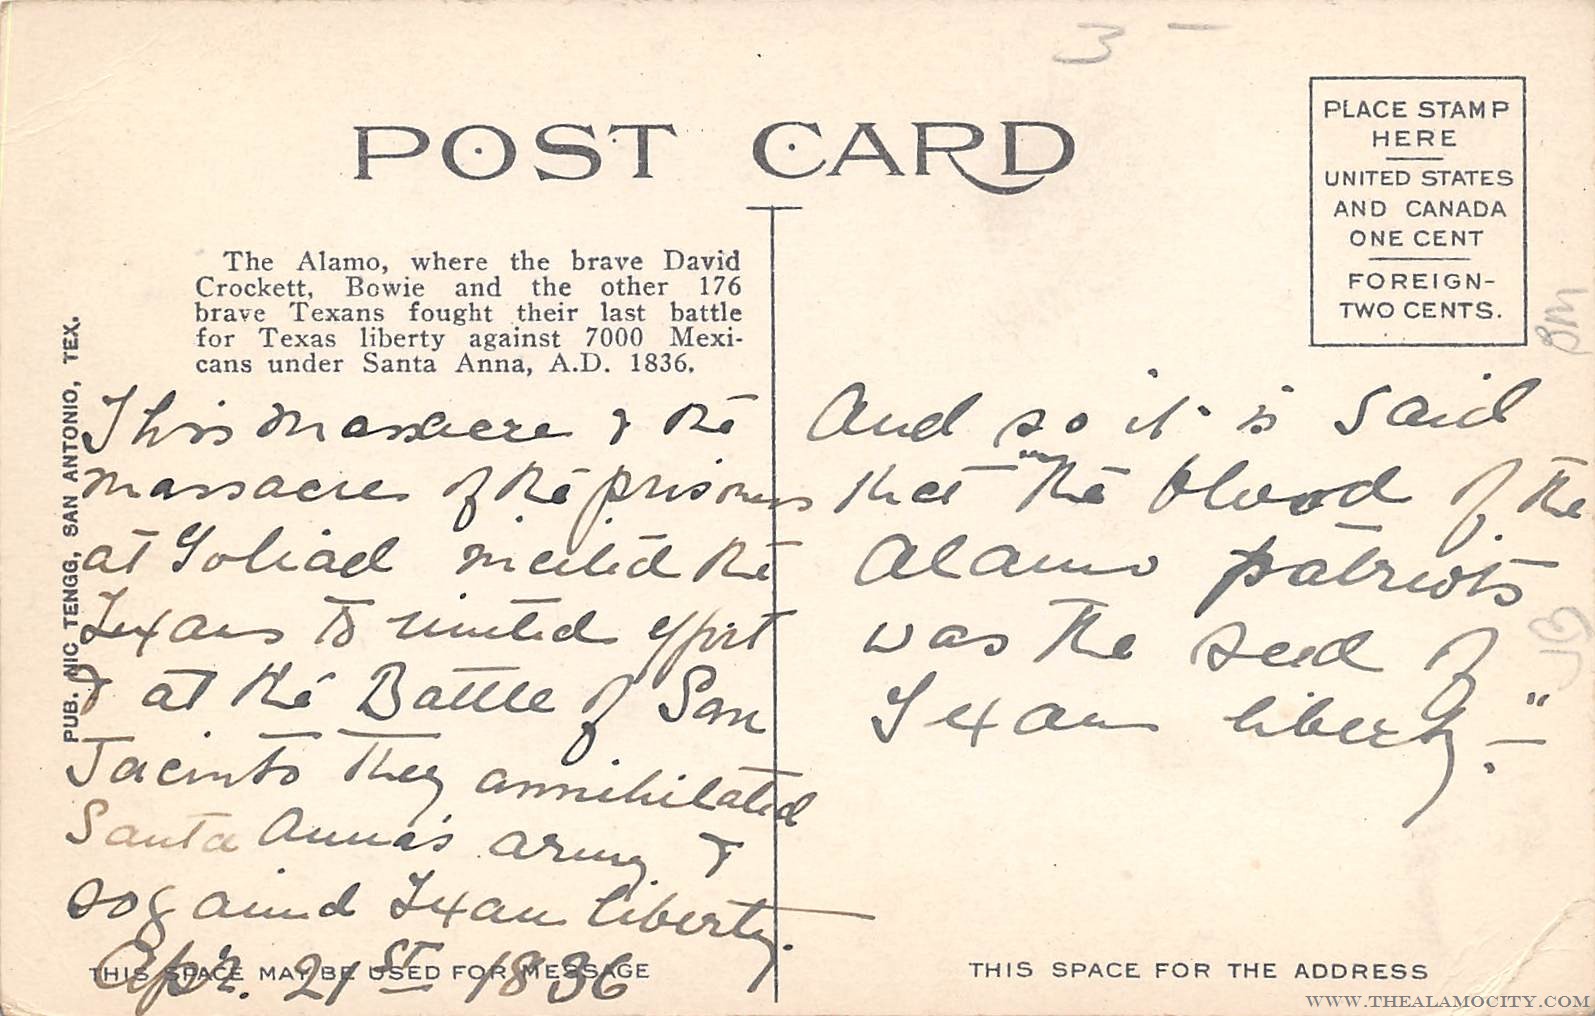 3 —
POST CARD
PLACE STAMP
HERE
UNITED STATES
AND CANADA
ONE CENT
FOREIGN-
TWO CENTS.
BM
The Alamo, where the brave David
Crockett, Bowie and the other 176
brave Texans fought their last battle
for Texas liberty against 7000 Mexi-
cans under Santa Anna, A.D. 1836.
PUB. NIC TENGG, SAN ANTONIO, TEX.
This massacre & the
massacre of the prisoners
at Goliad incited the
Texans to united effort
& at the Battle of San
Jacinto they annihilated
Santa Anna's army &
so gained Texan liberty.
Apr. 21st 1836
THIS SPACE MAY BE USED FOR MESSAGE
And so it is said
that "the blood of the
Alamo patriots
was the seed of
Texan liberty."
JB
THIS SPACE FOR THE ADDRESS
WWW.THEALAMOCITY.COM